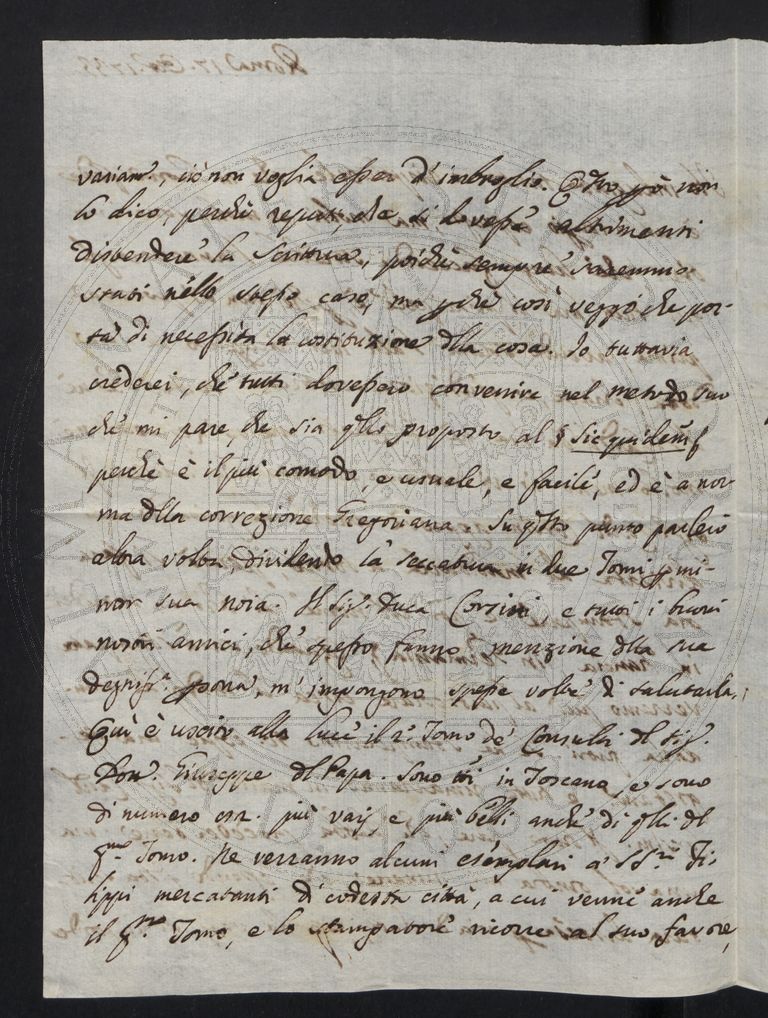 variam.e, ciò non voglia esser d'imbroglio. Q.sto però non
lo dico, perchè reputi, che si dovesse altrimenti
distendere la Scrittura, poichè sempre saremmo
stati nello stesso caso, ma perchè così veggo che por-
ta di necessità la costituzione dlla cosa. Io tuttavia
crederei, che tutti dovessero convenire nel metodo suo
che mi pare, che sia qllo proposto al § Siquidem
perchè è il più comodo, e usuale, e facile, ed è a nor-
ma dlla correzione Gregoriana. Su q.sto punto parlerò
altra volta, dividendo la seccatura in due Tomi p mi-
nor sua noia. Il Sig.r Duca Corsini e tutti i buoni
nostri amici, che spesso fanno menzione dlla sua
degniss.a psona, m'impongono spesse volte di salutarla.
Quì è uscito alla luce il 2.o Tomo de' Consulti dl Sig.r
Dott.r Giuseppe dl Papa. Sono tti in Toscano, e sono
di numero più vaij e più belli anche di qlli dl
p.mo Tomo. Ne verranno alcuni esemplari a' SS.ri Fi-
lippi mercatanti di codesta città, a cui venne anche
il p.mo Tomo, e lo stampatore ricorre al suo favore,